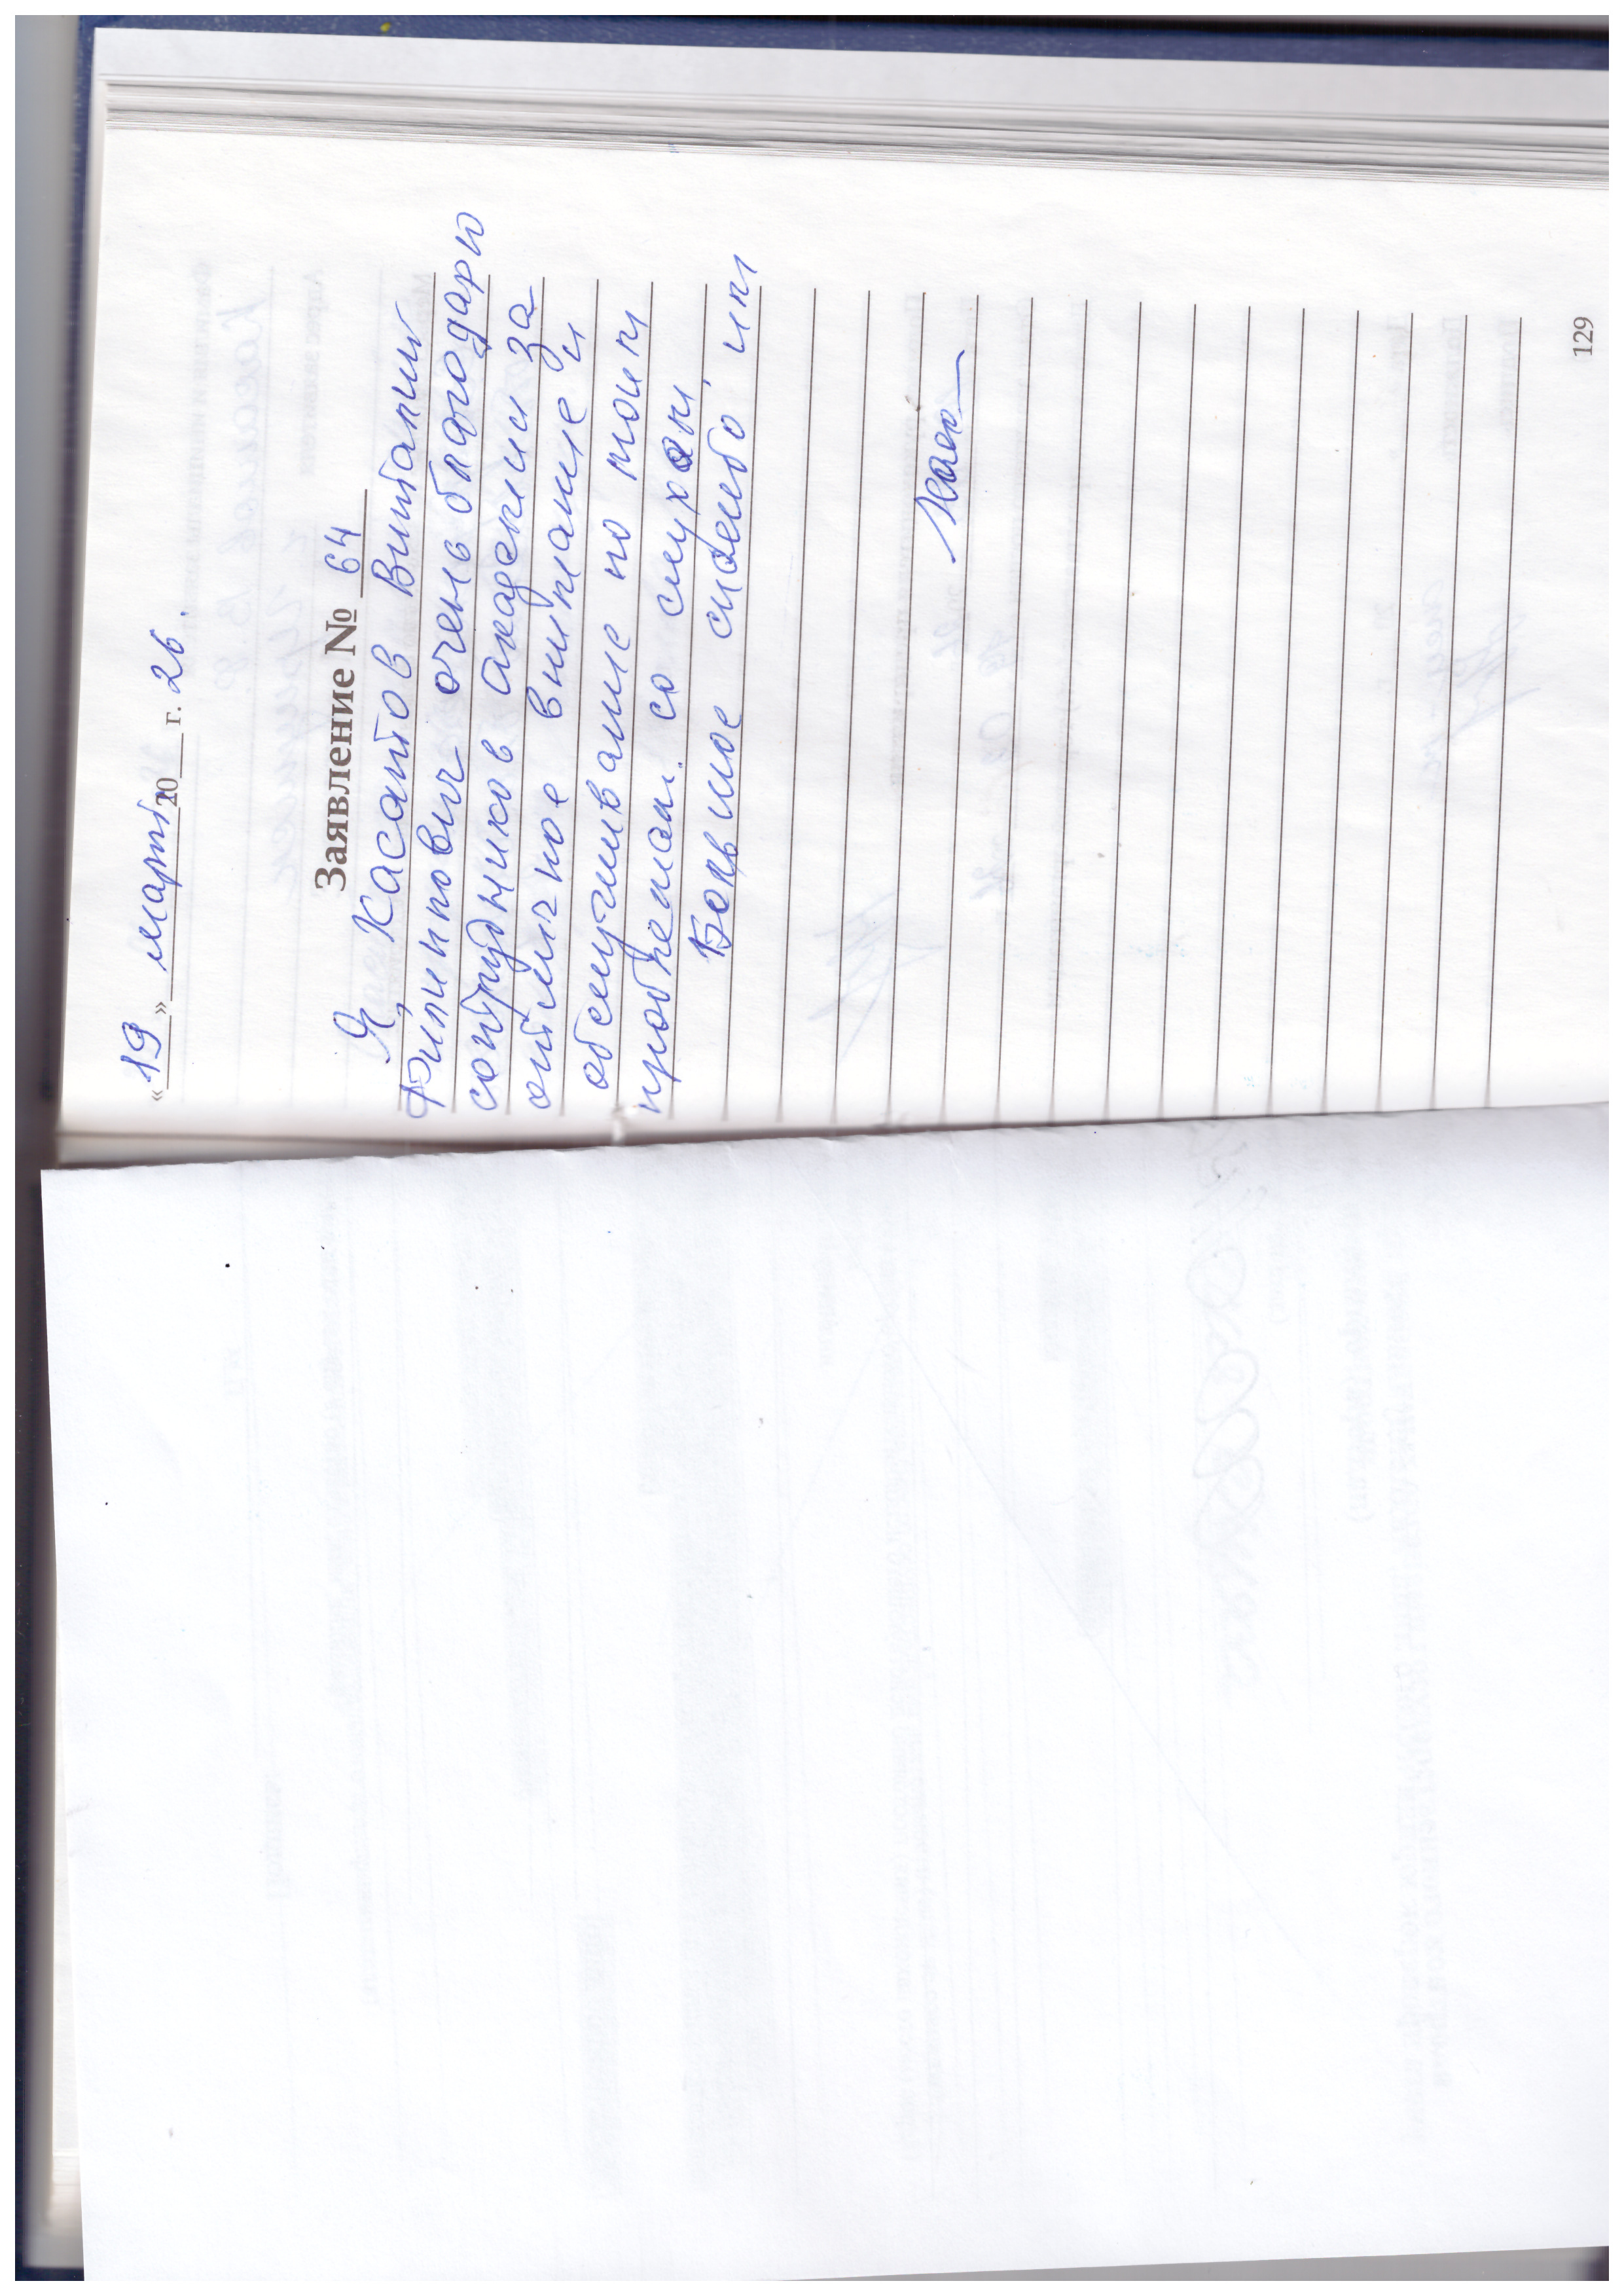 «19» марта 20 г. 26.
Заявление № 64
Я, Касатов Виталий
Филиппович очень благодарю
сотрудников академии за
отличное внимание и
обслуживание по моим
проблемам со слухом,
Большое спасибо им
129